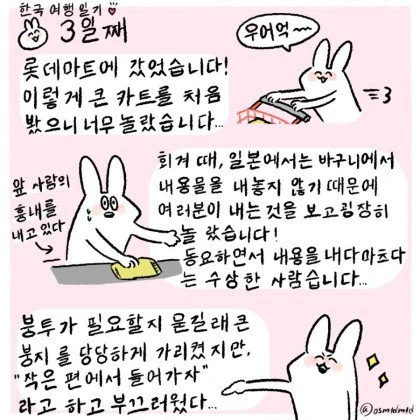 한국 여행일기
3일째
롯데마트에 갔었습니다!
이렇게 큰 카트를 처음
봤으니 너무 놀랐습니다...
우어억~~
회계 때, 일본에서는 바구니에서
내용물을 내놓지 않기 때문에
여러분이 내는 것을 보고 굉장히
놀랐습니다!
동요하면서 내용을 내다 마츠다
는 수상한 사람습니다...
앞 사람의
흉내를
내고 있다
봉투가 필요할지 묻길래 큰
봉지를 당당하게 가리켰지만,
"작은 편에서 들어가자"
라고 하고 부끄러웠다...
@osmldmld